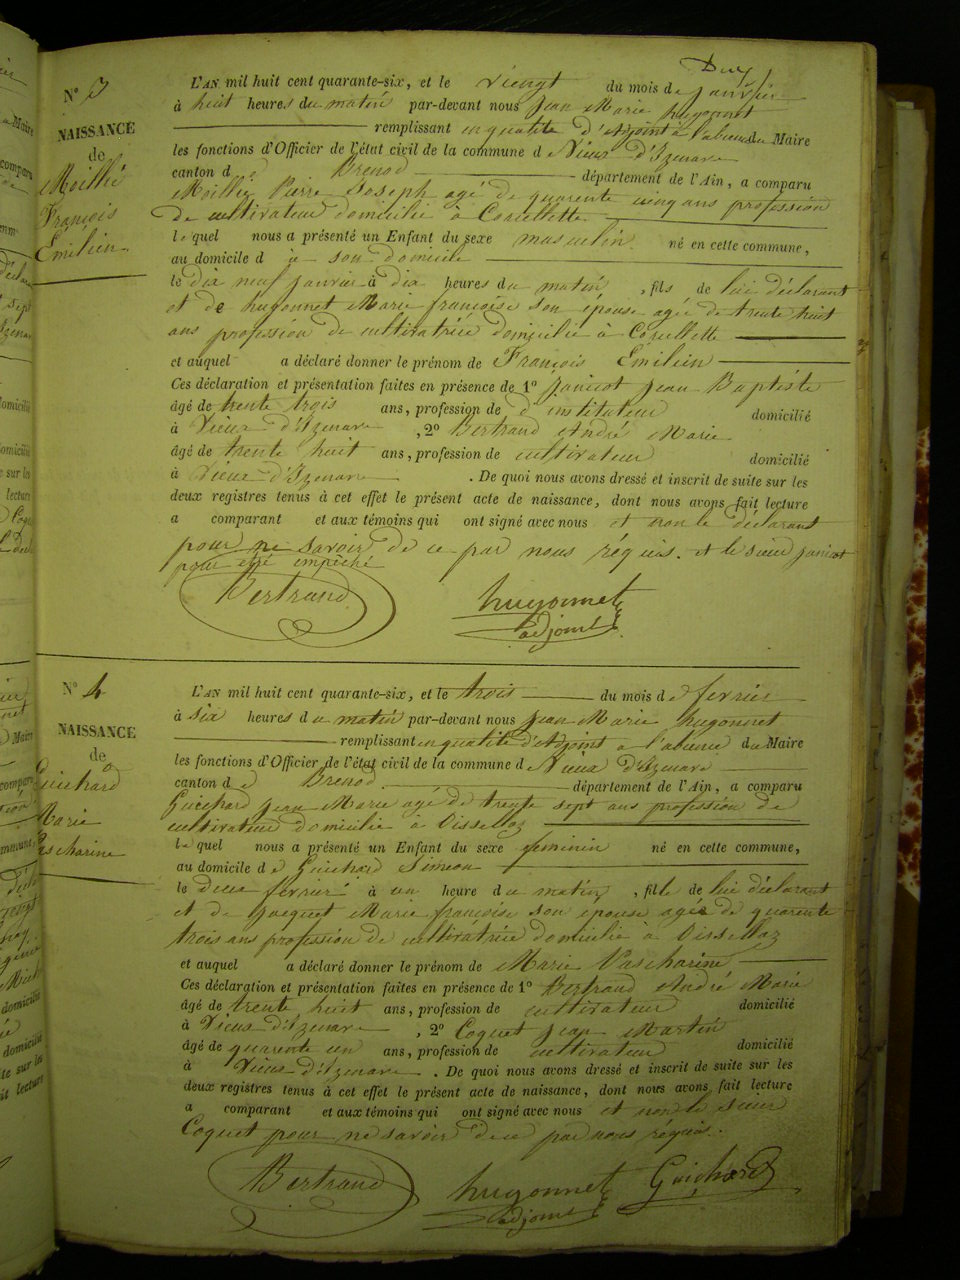 N° 3
NAISSANCE
de
Moillié
François
Emilien
L'AN mil huit cent quarante-six, et le vingt du mois de janvier
à huit heures du matin par-devant nous Jean Marie hugonnet
remplissant en qualité d'Adjoint à l'absence du Maire
les fonctions d'Officier de l'état civil de la commune d Vieux d'Izenave
canton d Brenod département de l'Ain, a comparu
Moillié Pierre Joseph agé de quarente cinq ans profession
de cultivateur domicilié à Corcellette
le quel nous a présenté un Enfant du sexe masculin né en cette commune,
au domicile d son domicile
le dix neuf janvier à dix heures du matin, fils de lui déclarant
et de hugonnet Marie françoise son épouse agée de trente huit
ans profession de cultivatrice domiciliée à Corcellette
et auquel a déclaré donner le prénom de François Emilien
Ces déclaration et présentation faites en présence de 1° janicot Jean Baptiste
âgé de trente trois ans, profession de d'instituteur domicilié
à Vieux d'Izenave, 2° Bertrand André Marie
âgé de trente huit ans, profession de cultivateur domicilié
à Vieux d'Izenave. De quoi nous avons dressé et inscrit de suite sur les
deux registres tenus à cet effet le présent acte de naissance, dont nous avons fait lecture
a comparant et aux témoins qui ont signé avec nous et non le déclarant
pour ne savoir de ce par nous réquis. et le sieur janicot
pour etre empêché
Bertrand hugonnet
adjoint
N° 4
NAISSANCE
de
Guichard
Marie
L'AN mil huit cent quarante-six, et le trois du mois de fevrier
à six heures du matin par-devant nous Jean Marie hugonnet
remplissant en qualité d'Adjoint a l'absence du Maire
les fonctions d'Officier de l'état civil de la commune de Vieux d'Izenave
canton de Brenod département de l'Ain, a comparu
Guichard Jean Marie agé de trente sept ans profession de
cultivateur domicilié à Oissellaz
le quel nous a présenté un Enfant du sexe feminin né en cette commune,
au domicile de Guichard Simeon
le deux fevrier à un heure du matin, fille de lui déclarant
et de Jacquet Marie françoise son épouse agée de quarente
trois ans profession de cultivatrice domicilié à Oissellaz
et auquel a déclaré donner le prénom de Marie
Ces déclaration et présentation faites en présence de 1° Bertrand André Marie
âgé de trente huit ans, profession de cultivateur domicilié
à Vieux d'Izenave, 2° Coquet Jean Martin
âgé de quarente un ans, profession de cultivateur domicilié
à Vieux d'Izenave. De quoi nous avons dressé et inscrit de suite sur les
deux registres tenus à cet effet le présent acte de naissance, dont nous avons fait lecture
a comparant et aux témoins qui ont signé avec nous et non le sieur
Coquet pour ne savoir de ce par nous réquis.
Bertrand hugonnet Guichard
adjoint